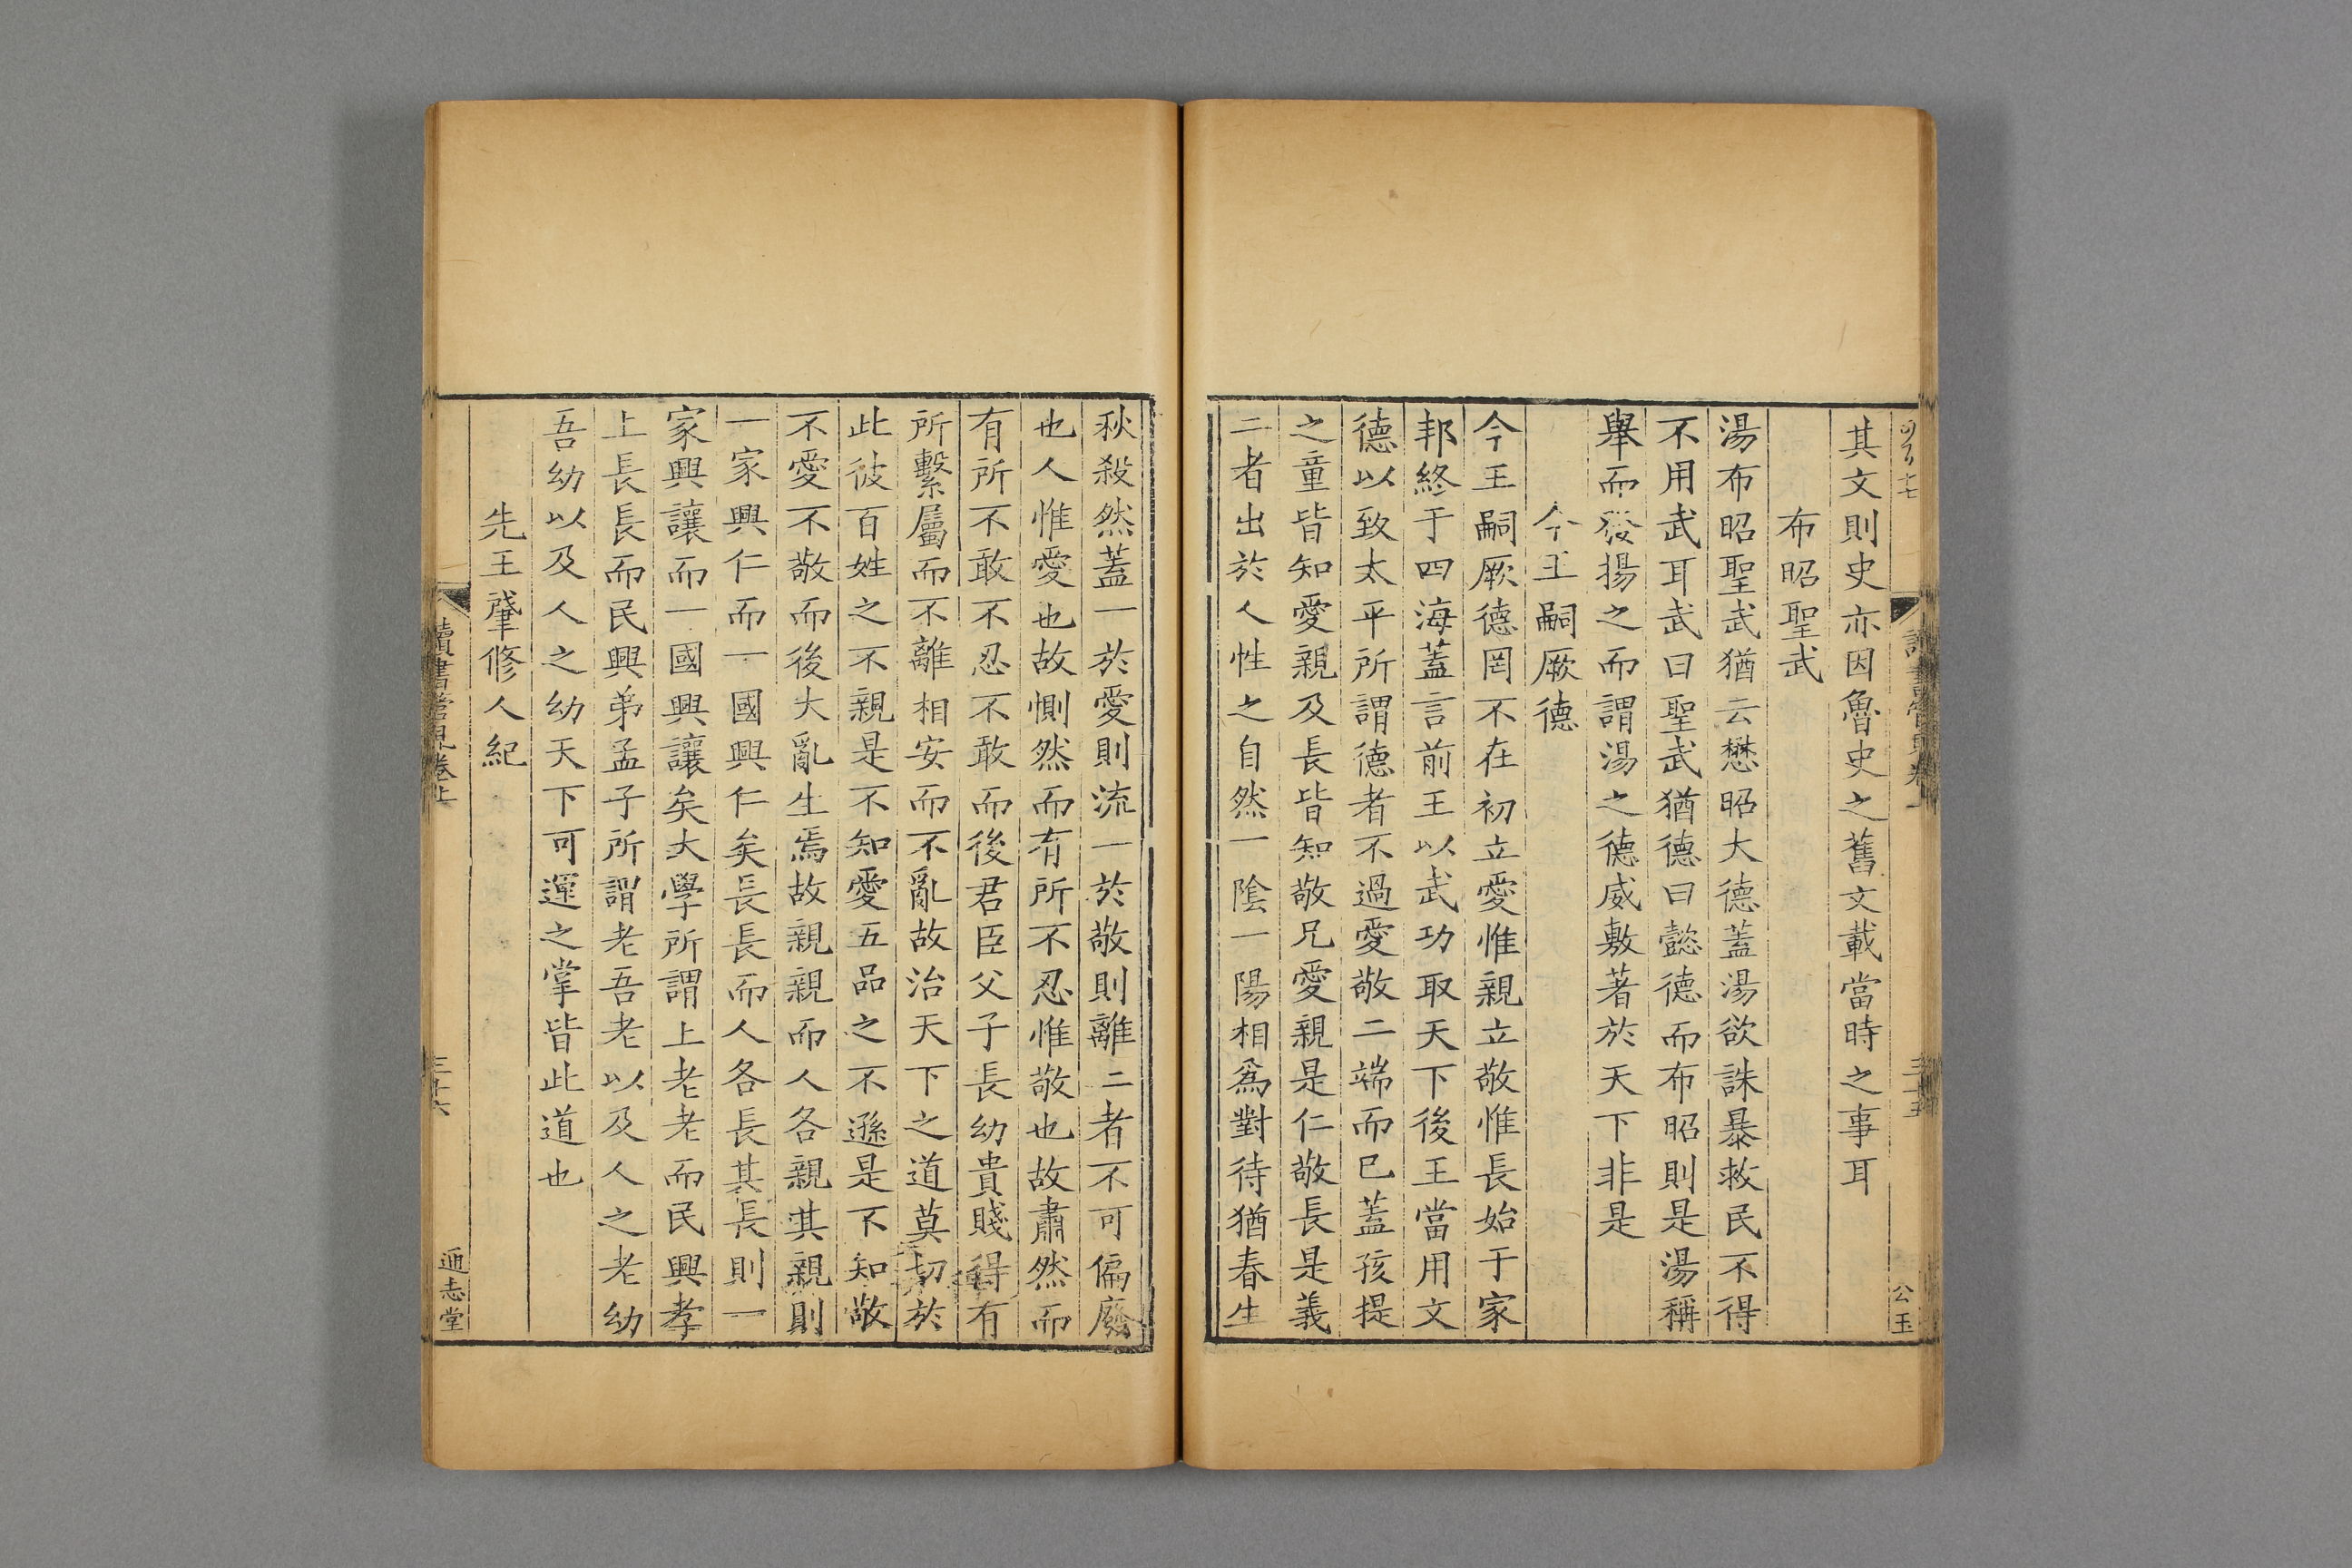 其文則史亦因魯史之舊文載當時之事耳
布昭聖武
湯布昭聖武猶云懋昭大德蓋湯欲誅暴救民不得
不用武耳武曰聖武猶德曰懿德而布昭則是湯稱
舉而發揚之而謂湯之德威敷著於天下非是
今王嗣厥德
今王嗣厥德罔不在初立愛惟親立敬惟長始于家
邦終于四海蓋言前王以武功取天下後王當用文
德以致太平所謂德者不過愛敬二端而已蓋孩提
之童皆知愛親及長皆知敬兄愛親是仁敬長是義
二者出於人性之自然一陰一陽相為對待猶春生
秋殺然蓋一於愛則流一於敬則離二者不可偏廢
也人惟愛也故惻然而有所不忍惟敬也故肅然而
有所不敢不忍不敢而後君臣父子長幼貴賤得有
所繫屬而不離相安而不亂故治天下之道莫切於
此彼百姓之不親是不知愛五品之不遜是不知敬
不愛不敬而後大亂生焉故親親而人各親其親則
一家興仁而一國興仁矣長長而人各長其長則一
家興讓而一國興讓矣大學所謂上老老而民興孝
上長長而民興弟孟子所謂老吾老以及人之老幼
吾幼以及人之幼天下可運之掌皆此道也
先王肇修人紀
讀書管見卷上
三十六
通志堂